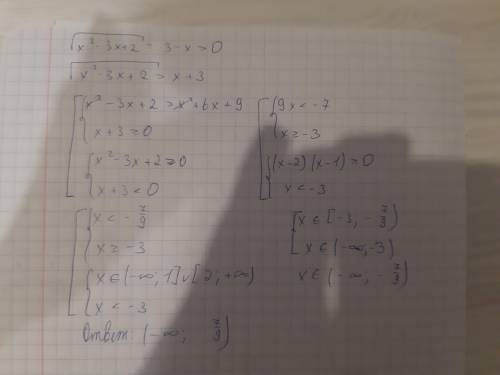 √(x² - 3x + 2) - 3 - x > 0
√(x² - 3x + 2) > x + 3
[ { x² - 3x + 2 > x² + 6x + 9
{ x + 3 ≥ 0
{ x² - 3x + 2 ≥ 0
{ x + 3 < 0
[ { 9x < -7
{ x ≥ -3
{ (x-2)(x-1) ≥ 0
{ x < -3
[ { x < - 7/9
{ x ≥ -3
{ x ∈ (-∞; 1] ∪ [2; +∞)
{ x < -3
[ x ∈ [-3; - 7/9)
x ∈ (-∞; -3)
x ∈ (-∞; - 7/9)
Ответ: (-∞; 7/9)